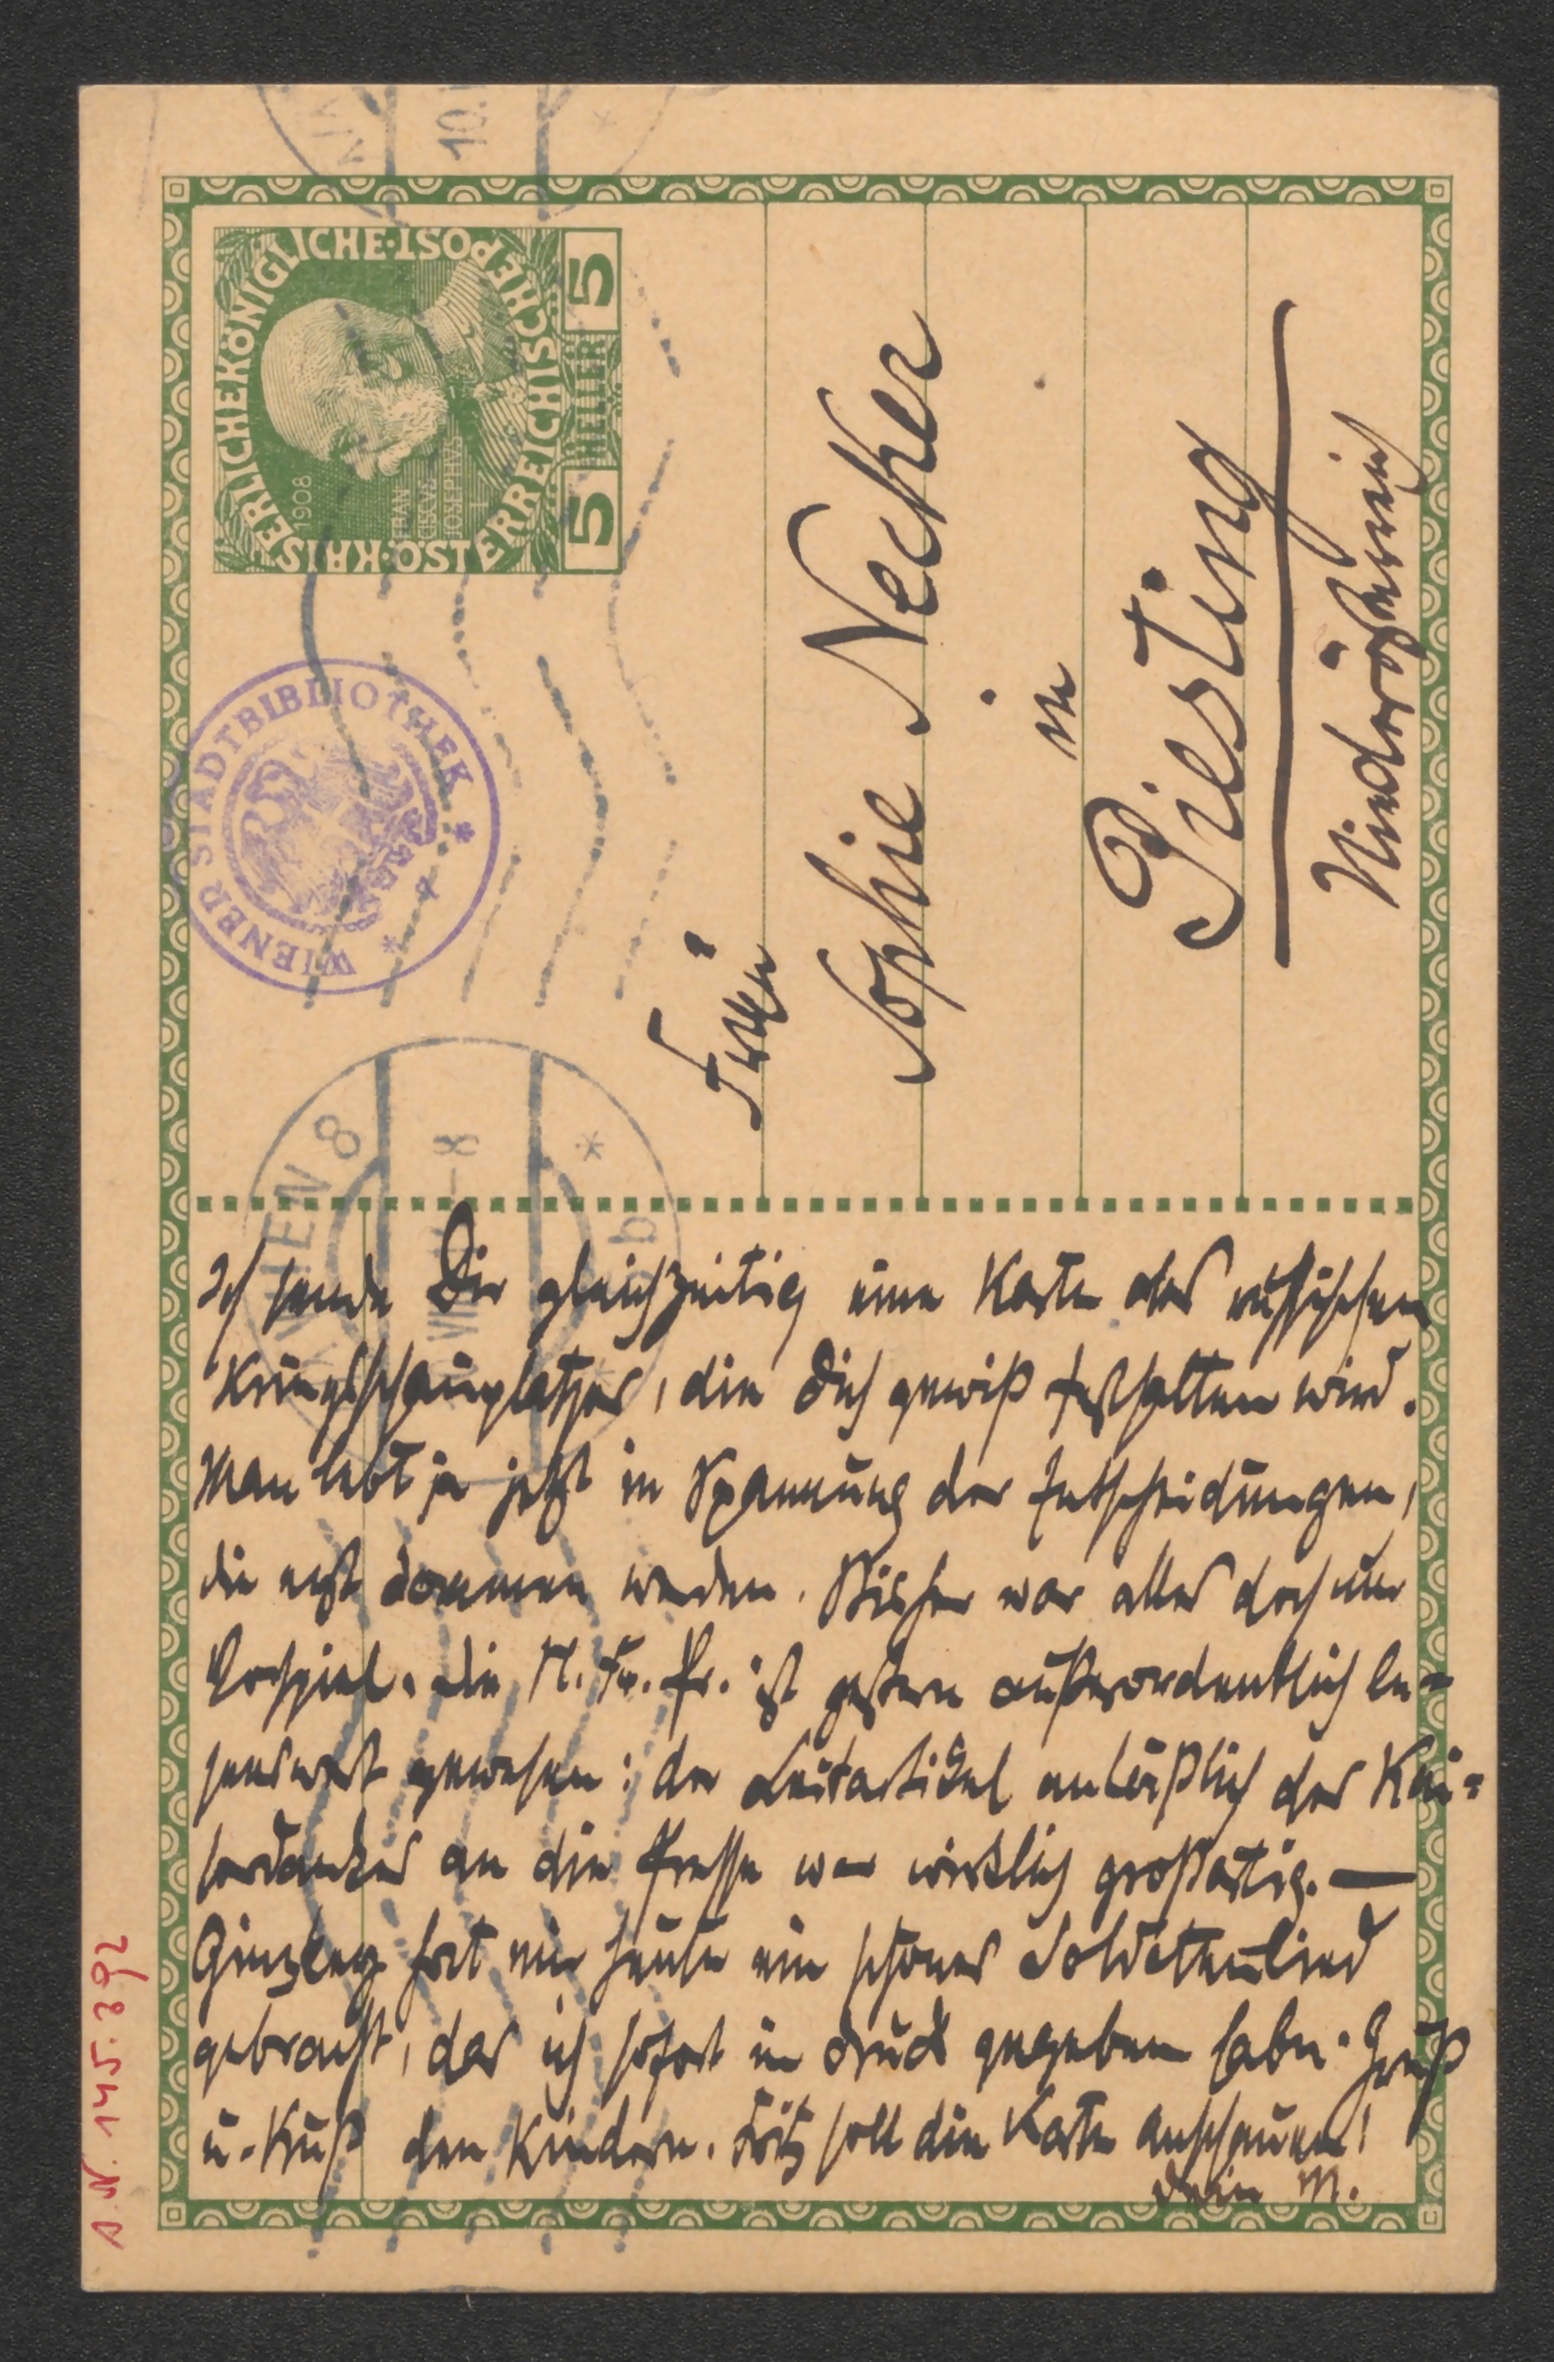 KAISERLICHEKÖNIGLICHE·ÖSTERREICHISCHEPOST
1908
FRAN
CISCVS
JOSEPHVS
I
5 HELLER 5
WIENER STADTBIBLIOTHEK
WIEN 8
VIII 14 – 8
b
10.
Frau
Sophie Necker
in
Piesting
Niederösterreich
Ich sende Dir gleichzeitig eine Karte des russischen
Kriegsschauplatzes, die Dich gewiß festhalten wird.
Man lebt ja jetzt in Spannung der Entscheidungen,
die erst kommen werden. Bisher war alles doch nur
Vorspiel. Die N. Fr. Pr. ist gestern außerordentlich le=
senswert gewesen: der Leitartikel anläßlich des Kai=
serdankes an die Presse war wirklich großartig. —
Ginzkey hat mir heute ein schönes Soldatenlied
gebracht, das ich sofort in Druck gegeben habe. Gruß
u. Kuß den Kindern. Fritz soll die Karte anschauen!
Dein M.
A.N. 145.392